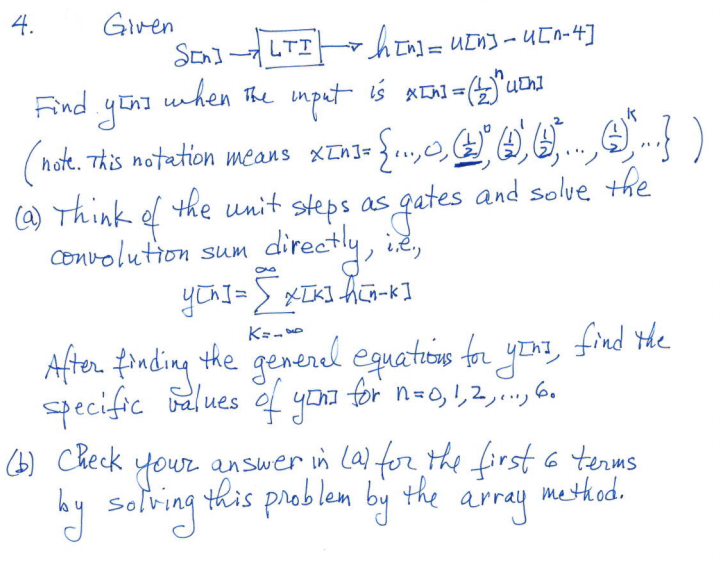 4. Given
δ[n] → LTI → h[n] = u[n] - u[n-4]
Find y[n] when the input is x[n] = (1/2)^n u[n]
(note. This notation means x[n] = {..., 0, (1/2)^0, (1/2)^1, (1/2)^2, ..., (1/2)^k, ...} )
(a) Think of the unit steps as gates and solve the
convolution sum directly, i.e.,
y[n] = ∑_{K=-∞}^{∞} x[k] h[n-k]
After finding the general equations for y[n], find the
specific values of y[n] for n=0, 1, 2, ..., 6.
(b) Check your answer in (a) for the first 6 terms
by solving this problem by the array method.